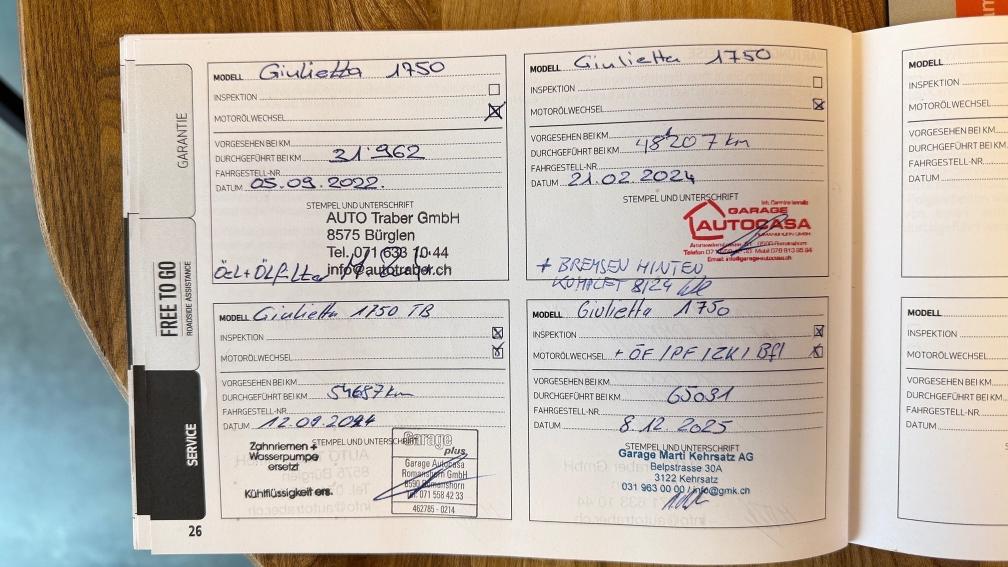 GARANTIE
FREE TO GO
ROADSIDE ASSISTANCE
SERVICE
26
MODELL Giulietta 1750
INSPEKTION
MOTORÖLWECHSEL
VORGESEHEN BEI KM
DURCHGEFÜHRT BEI KM 31'962
FAHRGESTELL-NR.
DATUM 05.09.2022.
STEMPEL UND UNTERSCHRIFT
AUTO Traber GmbH
8575 Bürglen
Tel. 071 633 10 44
info@autotraber.ch
ÖEL + ÖLfilter
MODELL Giulietta 1750
INSPEKTION
MOTORÖLWECHSEL
VORGESEHEN BEI KM
DURCHGEFÜHRT BEI KM 48'207 km
FAHRGESTELL-NR.
DATUM 21.02.2024
STEMPEL UND UNTERSCHRIFT
GARAGE
AUTOCASA
ROMANSHORN GMBH
Email: info@garage-autocasa.ch
+ BREMSEN HINTEN
KOMPLET 8/24
MODELL Giulietta 1750 TB
INSPEKTION
MOTORÖLWECHSEL
VORGESEHEN BEI KM
DURCHGEFÜHRT BEI KM 54687 km
FAHRGESTELL-NR.
DATUM 12.09.2024
STEMPEL UND UNTERSCHRIFT
Zahnriemen +
Wasserpumpe
ersetzt
Kühlflüssigkeit ers.
Garage
plus
Garage Autocasa
Romanshorn GmbH
8590 Romanshorn
Tel. 071 558 42 33
462785 - 0214
MODELL Giulietta 1750
INSPEKTION
MOTORÖLWECHSEL + ÖF / PF / ZK / Bfl
VORGESEHEN BEI KM
DURCHGEFÜHRT BEI KM 65031
FAHRGESTELL-NR.
DATUM 8.12.2025
STEMPEL UND UNTERSCHRIFT
Garage Marti Kehrsatz AG
Belpstrasse 30A
3122 Kehrsatz
031 963 00 00 / info@gmk.ch
MODELL
INSPEKTION
MOTORÖLWECHSEL
VORGESEHEN BEI KM
DURCHGEFÜHRT BEI KM
FAHRGESTELL-NR.
DATUM
MODELL
INSPEKTION
MOTORÖLWECHSEL
VORGESEHEN BEI KM
DURCHGEFÜHRT BEI KM
FAHRGESTELL-NR.
DATUM